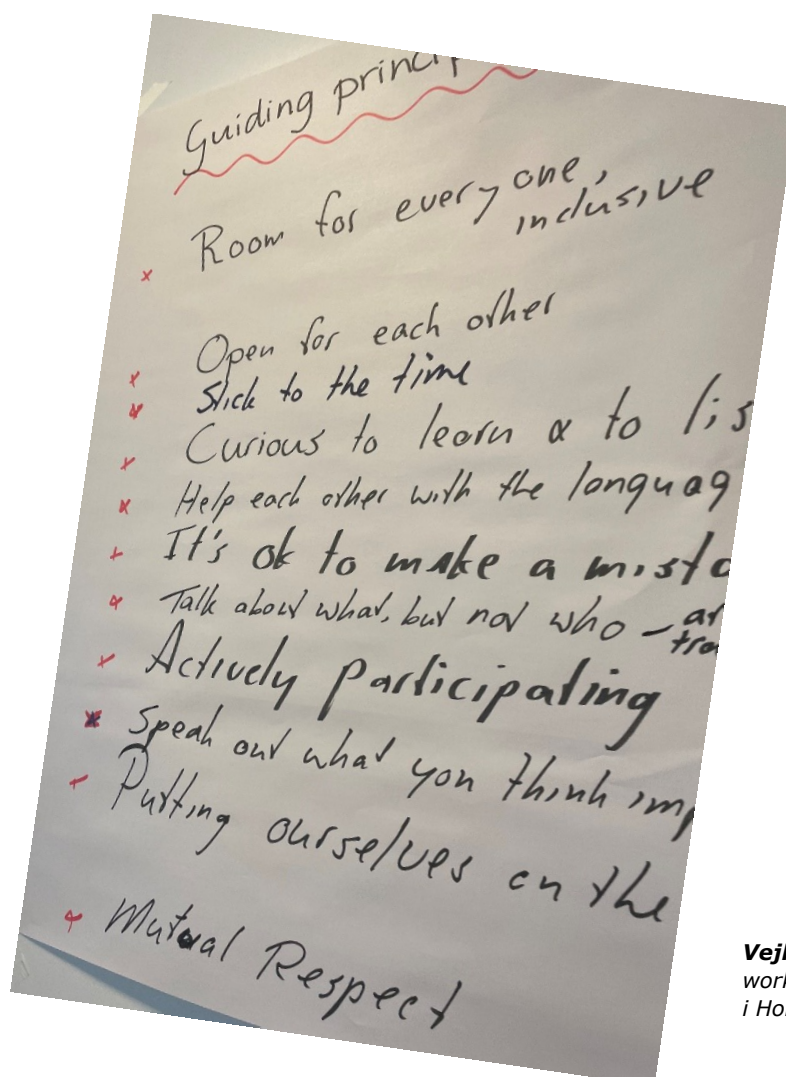 Guiding princip
Room for everyone,
inclusive
Open for each other
Stick to the time
Curious to learn & to lis
Help each other with the languag
It's ok to make a mist
Talk about what, but not who –
Actively participating
Speak out what you think imp
Putting ourselves on the
Mutual Respect
Vejl
work
i Ho